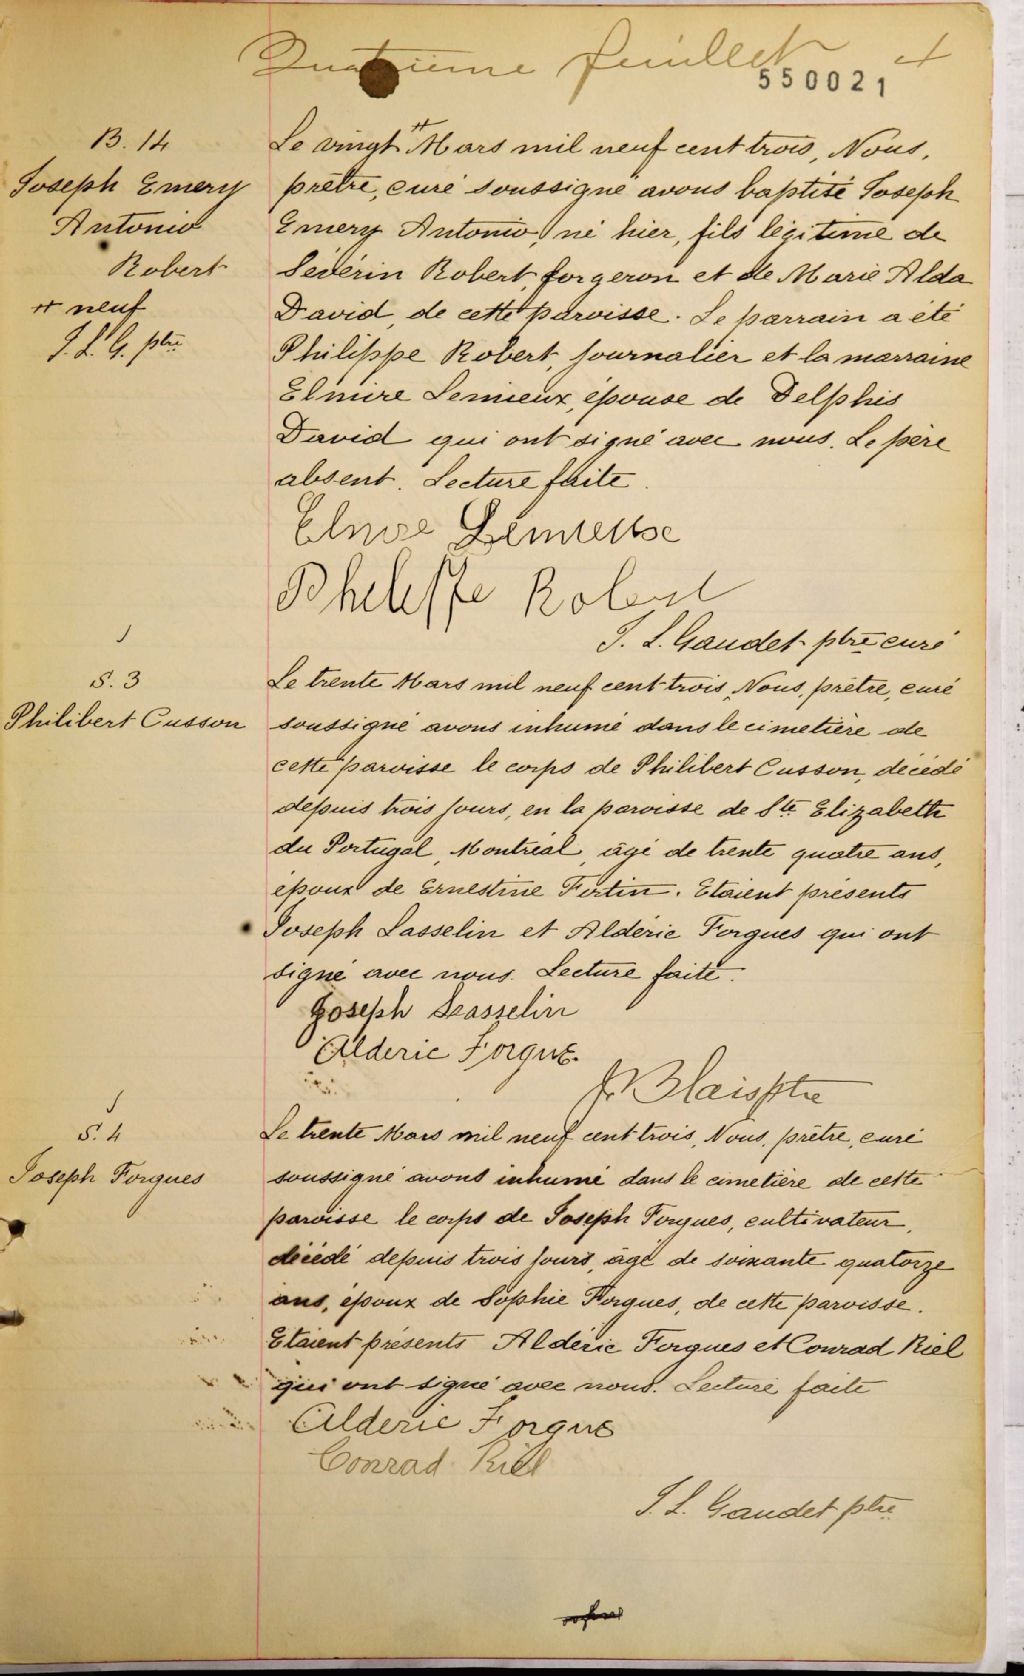 Quatrième feuillet 4
550021
B. 14
Joseph Emery
Antonio
Robert
++ neuf
J. L. G. ptre
Le vingt ++ Mars mil neuf cent trois, Nous,
prêtre, curé soussigné avons baptisé Joseph
Emery Antonio, né hier, fils légitime de
Sévérin Robert, forgeron et de Marie Alda
David, de cette paroisse. Le parrain a été
Philippe Robert, journalier et la marraine
Elmire Lemieux, épouse de Delphis
David qui ont signé avec nous. Le père
absent. Lecture faite.
Elmire Lemieux
Phileppe Robert
J. L. Gaudet ptre curé
S. 3
Philibert Cusson
Le trente Mars mil neuf cent trois, Nous, prêtre, curé
soussigné avons inhumé dans le cimetière de
cette paroisse le corps de Philibert Cusson, décédé
depuis trois jours, en la paroisse de Ste Elizabeth
du Portugal, Montréal, âgé de trente quatre ans,
époux de Ernestine Fortin. Etaient présents
Joseph Lasselin et Aldéric Forgues qui ont
signé avec nous. Lecture faite.
Joseph Lasselin
Alderic Forgue
J. Blais ptre
S. 4
Joseph Forgues
Le trente Mars mil neuf cent trois, Nous, prêtre, curé
soussigné avons inhumé dans le cimetière de cette
paroisse le corps de Joseph Forgues, cultivateur,
décédé depuis trois jours, âgé de soixante quatorze
ans, époux de Sophie Forgues, de cette paroisse.
Etaient présents Aldéric Forgues et Conrad Riel
qui ont signé avec nous. Lecture faite
Alderic Forgue
Conrad Riel
J. L. Gaudet ptre